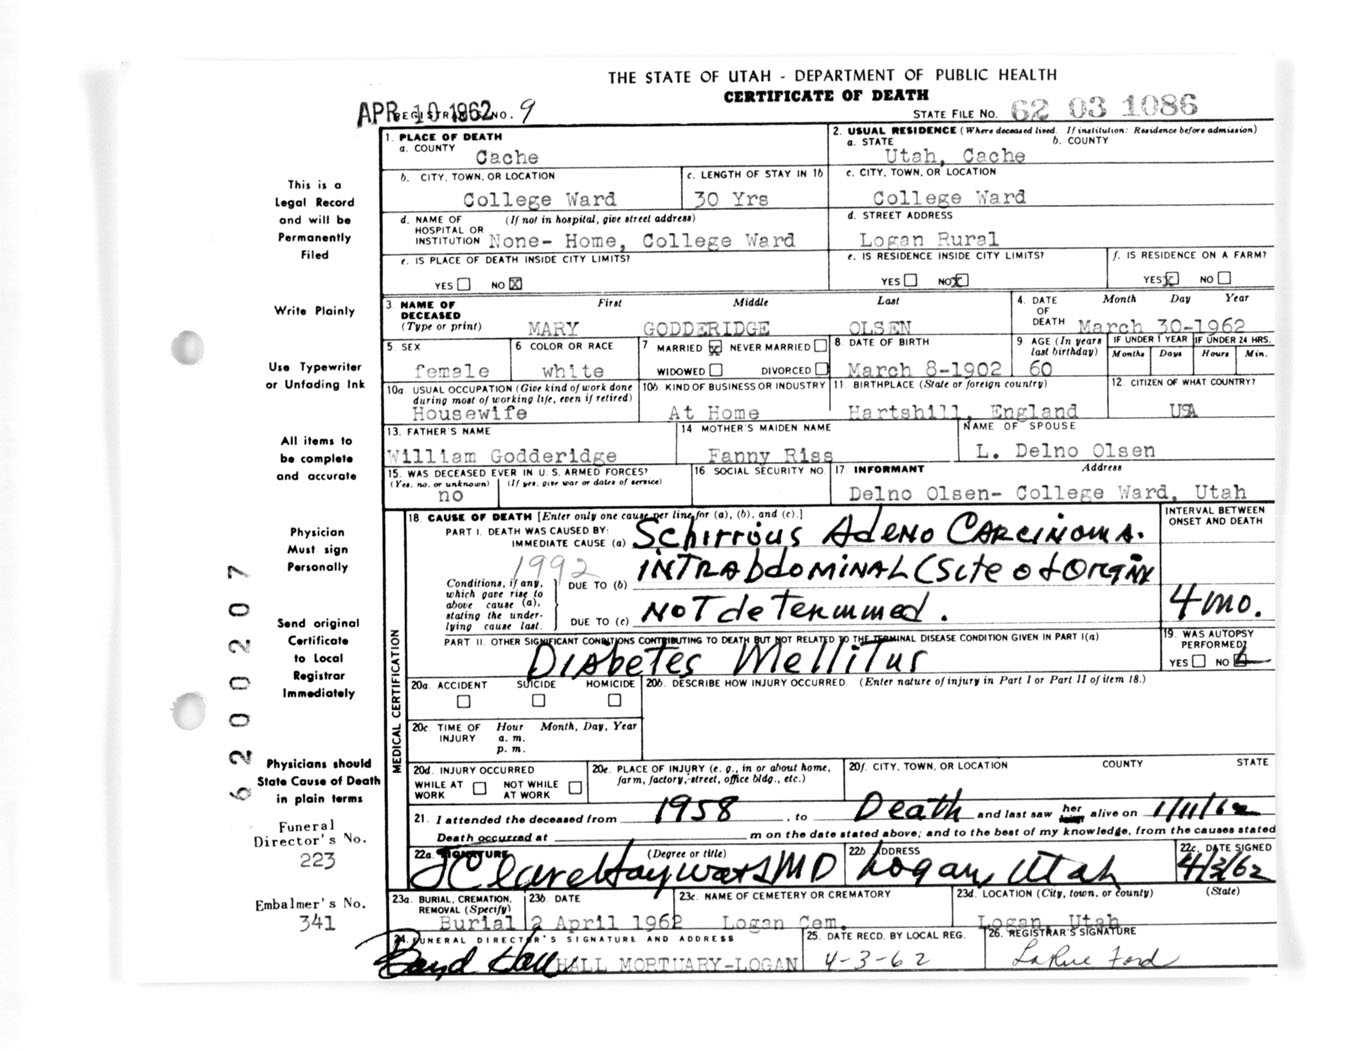 THE STATE OF UTAH - DEPARTMENT OF PUBLIC HEALTH
CERTIFICATE OF DEATH
APR 10 1962
REGISTRAR'S NO. 9
STATE FILE NO. 62 03 1086
This is a
Legal Record
and will be
Permanently
Filed
Write Plainly
Use Typewriter
or Unfading Ink
All items to
be complete
and accurate
Physician
Must sign
Personally
Send original
Certificate
to Local
Registrar
Immediately
Physicians should
State Cause of Death
in plain terms
Funeral
Director's No.
223
Embalmer's No.
341
6200207
1. PLACE OF DEATH
a. COUNTY
Cache
2. USUAL RESIDENCE (Where deceased lived. If institution: Residence before admission)
a. STATE b. COUNTY
Utah, Cache
b. CITY, TOWN, OR LOCATION
College Ward
c. LENGTH OF STAY IN 1b
30 Yrs
c. CITY, TOWN, OR LOCATION
College Ward
d. NAME OF HOSPITAL OR INSTITUTION (If not in hospital, give street address)
None- Home, College Ward
d. STREET ADDRESS
Logan Rural
e. IS PLACE OF DEATH INSIDE CITY LIMITS?
YES NO X
e. IS RESIDENCE INSIDE CITY LIMITS?
YES NO X
f. IS RESIDENCE ON A FARM?
YES X NO
3 NAME OF DECEASED (Type or print)
First Middle Last
MARY GODDERIDGE OLSEN
4. DATE OF DEATH Month Day Year
March 30-1962
5. SEX
female
6 COLOR OR RACE
white
7 MARRIED X NEVER MARRIED
WIDOWED DIVORCED
8 DATE OF BIRTH
March 8-1902
9 AGE (In years last birthday)
60
IF UNDER 1 YEAR IF UNDER 24 HRS.
Months Days Hours Min.
10a. USUAL OCCUPATION (Give kind of work done during most of working life, even if retired)
Housewife
10b. KIND OF BUSINESS OR INDUSTRY
At Home
11 BIRTHPLACE (State or foreign country)
Hartshill, England
12. CITIZEN OF WHAT COUNTRY?
USA
13. FATHER'S NAME
William Godderidge
14 MOTHER'S MAIDEN NAME
Fanny Riss
NAME OF SPOUSE
L. Delno Olsen
15. WAS DECEASED EVER IN U.S. ARMED FORCES?
(Yes, no, or unknown) (If yes, give war or dates of service)
no
16 SOCIAL SECURITY NO.
17 INFORMANT Address
Delno Olsen- College Ward, Utah
MEDICAL CERTIFICATION
18 CAUSE OF DEATH [Enter only one cause per line for (a), (b), and (c).]
INTERVAL BETWEEN ONSET AND DEATH
PART I. DEATH WAS CAUSED BY:
IMMEDIATE CAUSE (a) Schirrous Adeno Carcinoma.
1992
Conditions, if any, which gave rise to above cause (a), stating the underlying cause last.
DUE TO (b) INTRAbdominal (Site of Origin
DUE TO (c) NOT determined.
4 mo.
PART II. OTHER SIGNIFICANT CONDITIONS CONTRIBUTING TO DEATH BUT NOT RELATED TO THE TERMINAL DISEASE CONDITION GIVEN IN PART I(a)
Diabetes Mellitus
19. WAS AUTOPSY PERFORMED?
YES NO
20a. ACCIDENT SUICIDE HOMICIDE
20b. DESCRIBE HOW INJURY OCCURRED. (Enter nature of injury in Part I or Part II of item 18.)
20c. TIME OF INJURY Hour Month, Day, Year
a. m.
p. m.
20d. INJURY OCCURRED
WHILE AT WORK NOT WHILE AT WORK
20e. PLACE OF INJURY (e. g., in or about home, farm, factory, street, office bldg., etc.)
20f. CITY, TOWN, OR LOCATION COUNTY STATE
21. I attended the deceased from 1958, to Death and last saw her alive on 1/11/62
Death occurred at m on the date stated above; and to the best of my knowledge, from the causes stated
22a. SIGNATURE (Degree or title)
J Clare Hayward MD
22b ADDRESS
Logan, Utah
22c. DATE SIGNED
4/3/62
23a. BURIAL, CREMATION, REMOVAL (Specify)
Burial
23b. DATE
2 April 1962
23c. NAME OF CEMETERY OR CREMATORY
Logan Cem.
23d. LOCATION (City, town, or county) (State)
Logan, Utah
24. FUNERAL DIRECTOR'S SIGNATURE AND ADDRESS
Boyd Hall HALL MORTUARY-LOGAN
25. DATE RECD. BY LOCAL REG.
4-3-62
26. REGISTRAR'S SIGNATURE
LaRue Ford